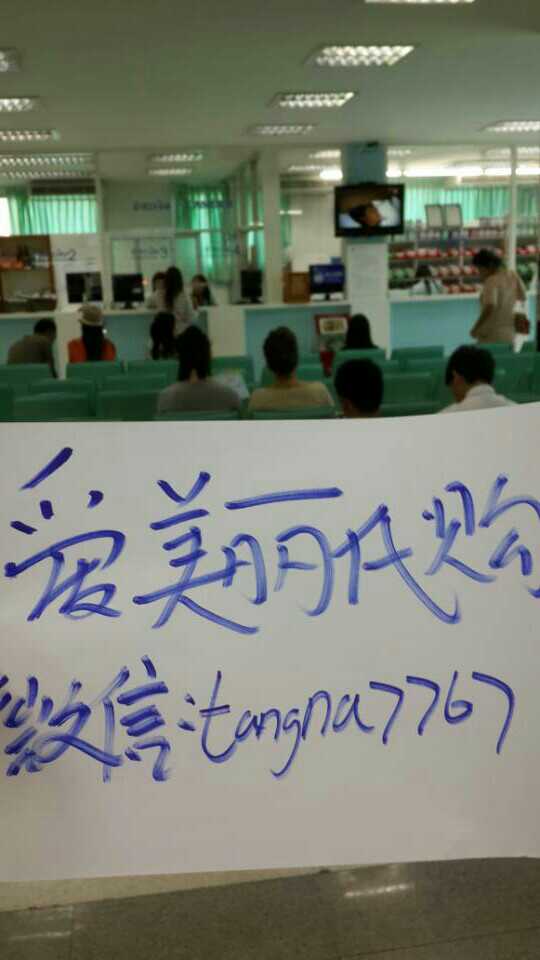 爱美丽代购
微信:tangna7767